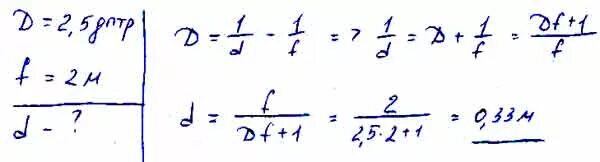 D = 2,5 дптр
f = 2 м
d - ?
D = 1/d - 1/f => 1/d = D + 1/f = Df+1/f
d = f/Df+1 = 2/2,5·2+1 = 0,33 м